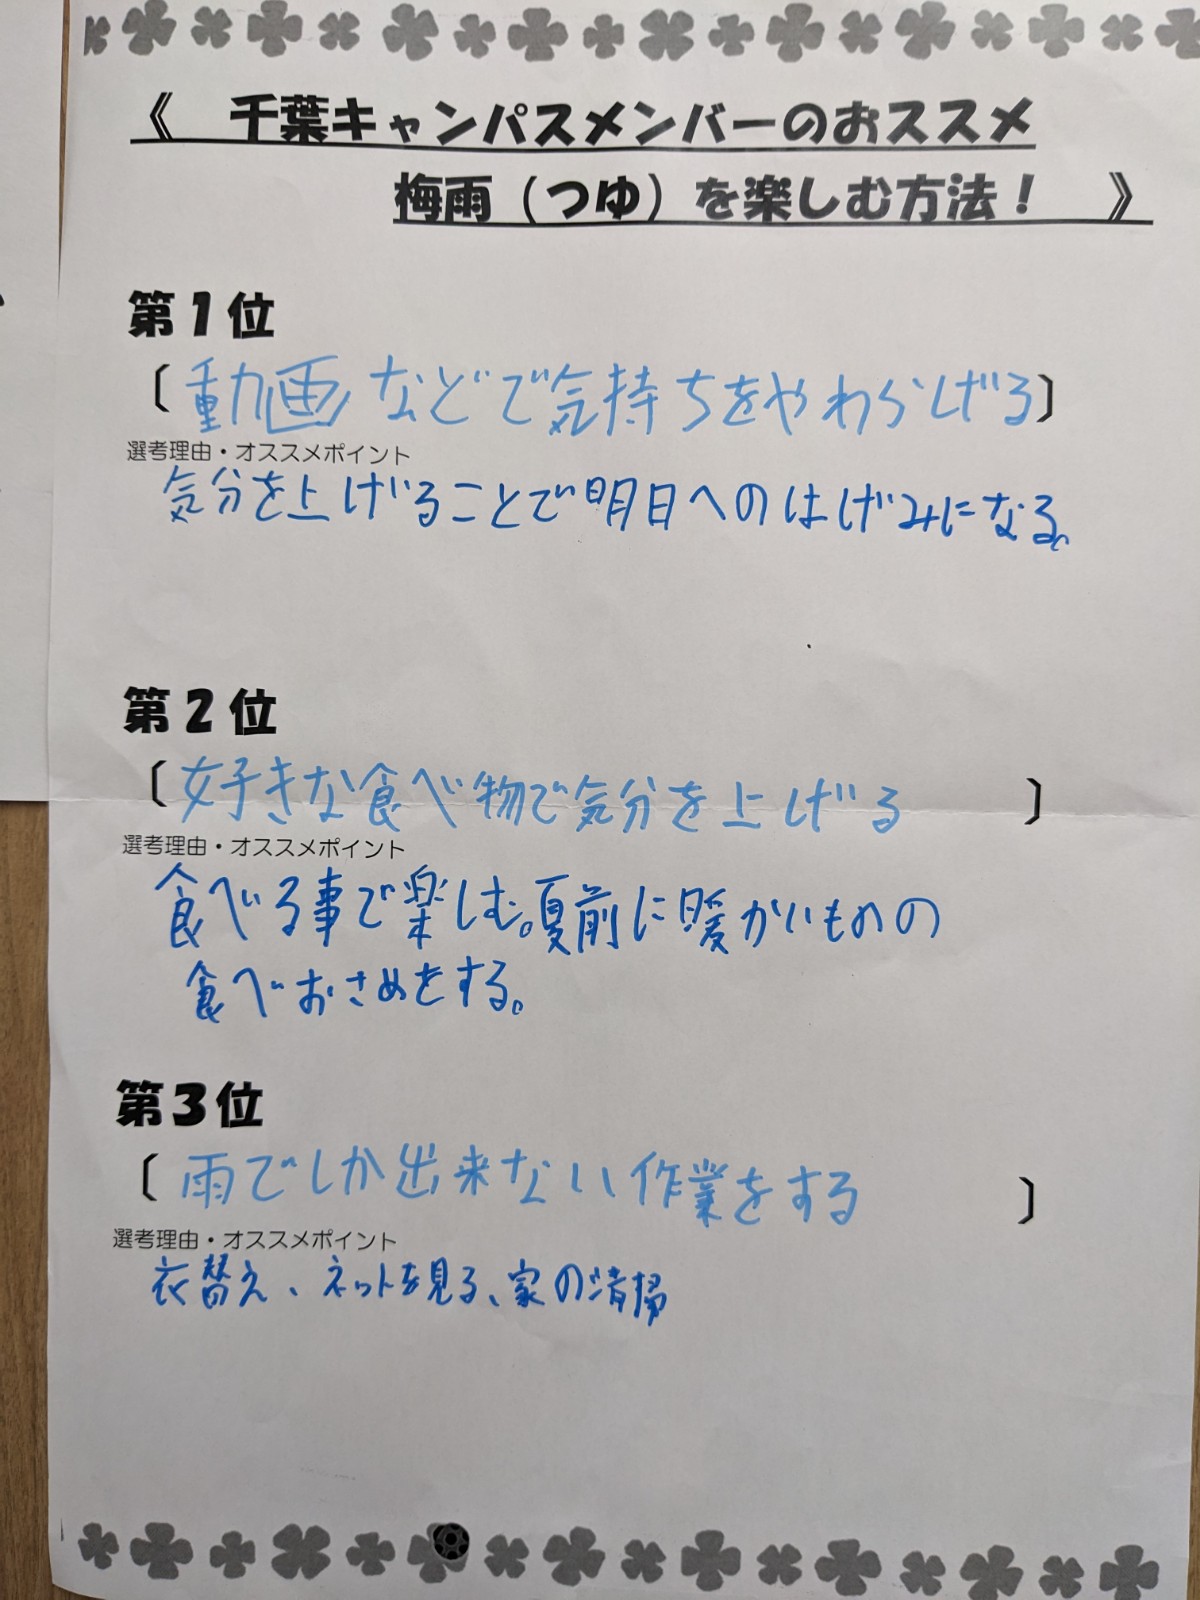 《 千葉キャンパスメンバーのおススメ
梅雨（つゆ）を楽しむ方法！ 》
第1位
〔動画などで気持ちをやわらげる〕
選考理由・オススメポイント
気分を上げることで明日へのはげみになる。
第2位
〔好きな食べ物で気分を上げる〕
選考理由・オススメポイント
食べる事で楽しむ。夏前に暖かいものの
食べおさめをする。
第3位
〔雨でしか出来ない作業をする〕
選考理由・オススメポイント
衣替え、ネットを見る、家の清掃